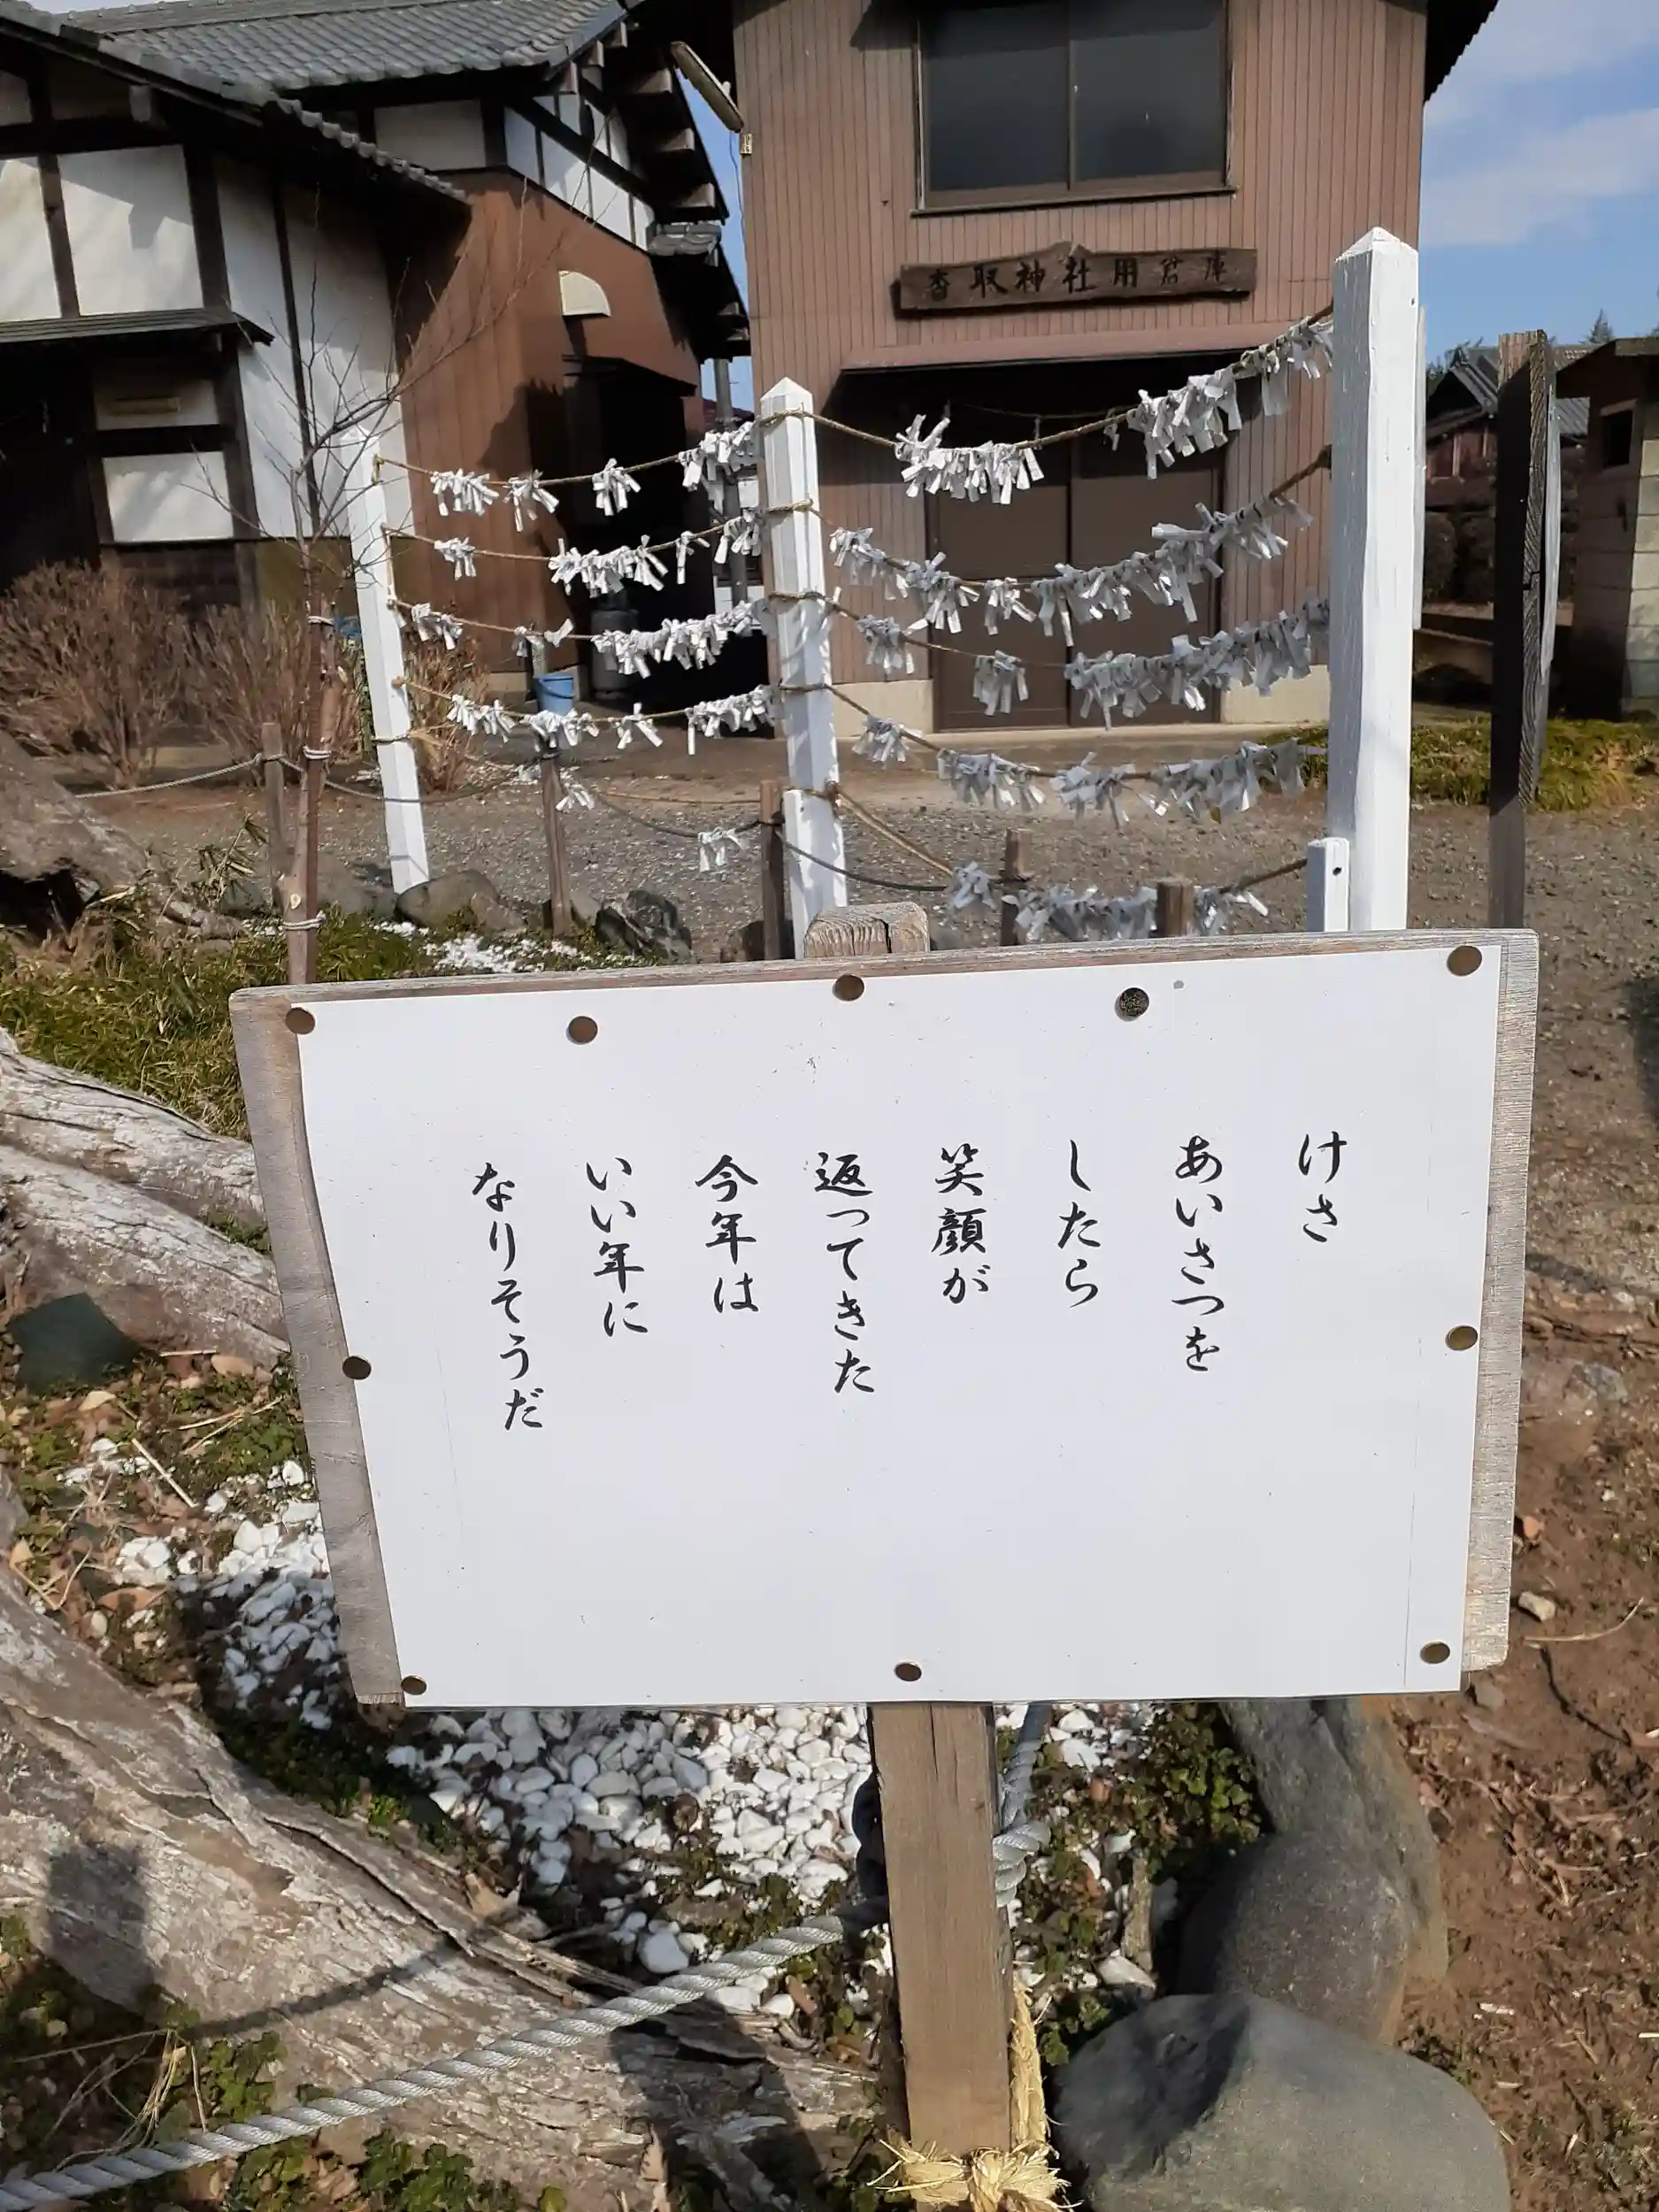 香取神社用倉庫
けさ
あいさつを
したら
笑顔が
返ってきた
今年は
いい年に
なりそうだ